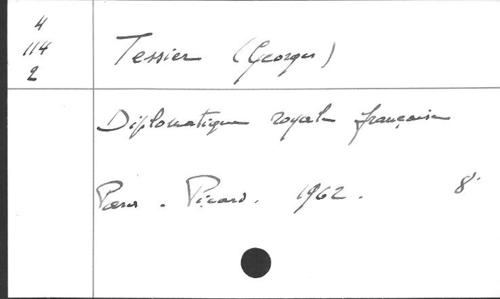 4
114
2
Tessier (Georges)
Diplomatique royale française
Paris. Picard. 1962. 8°